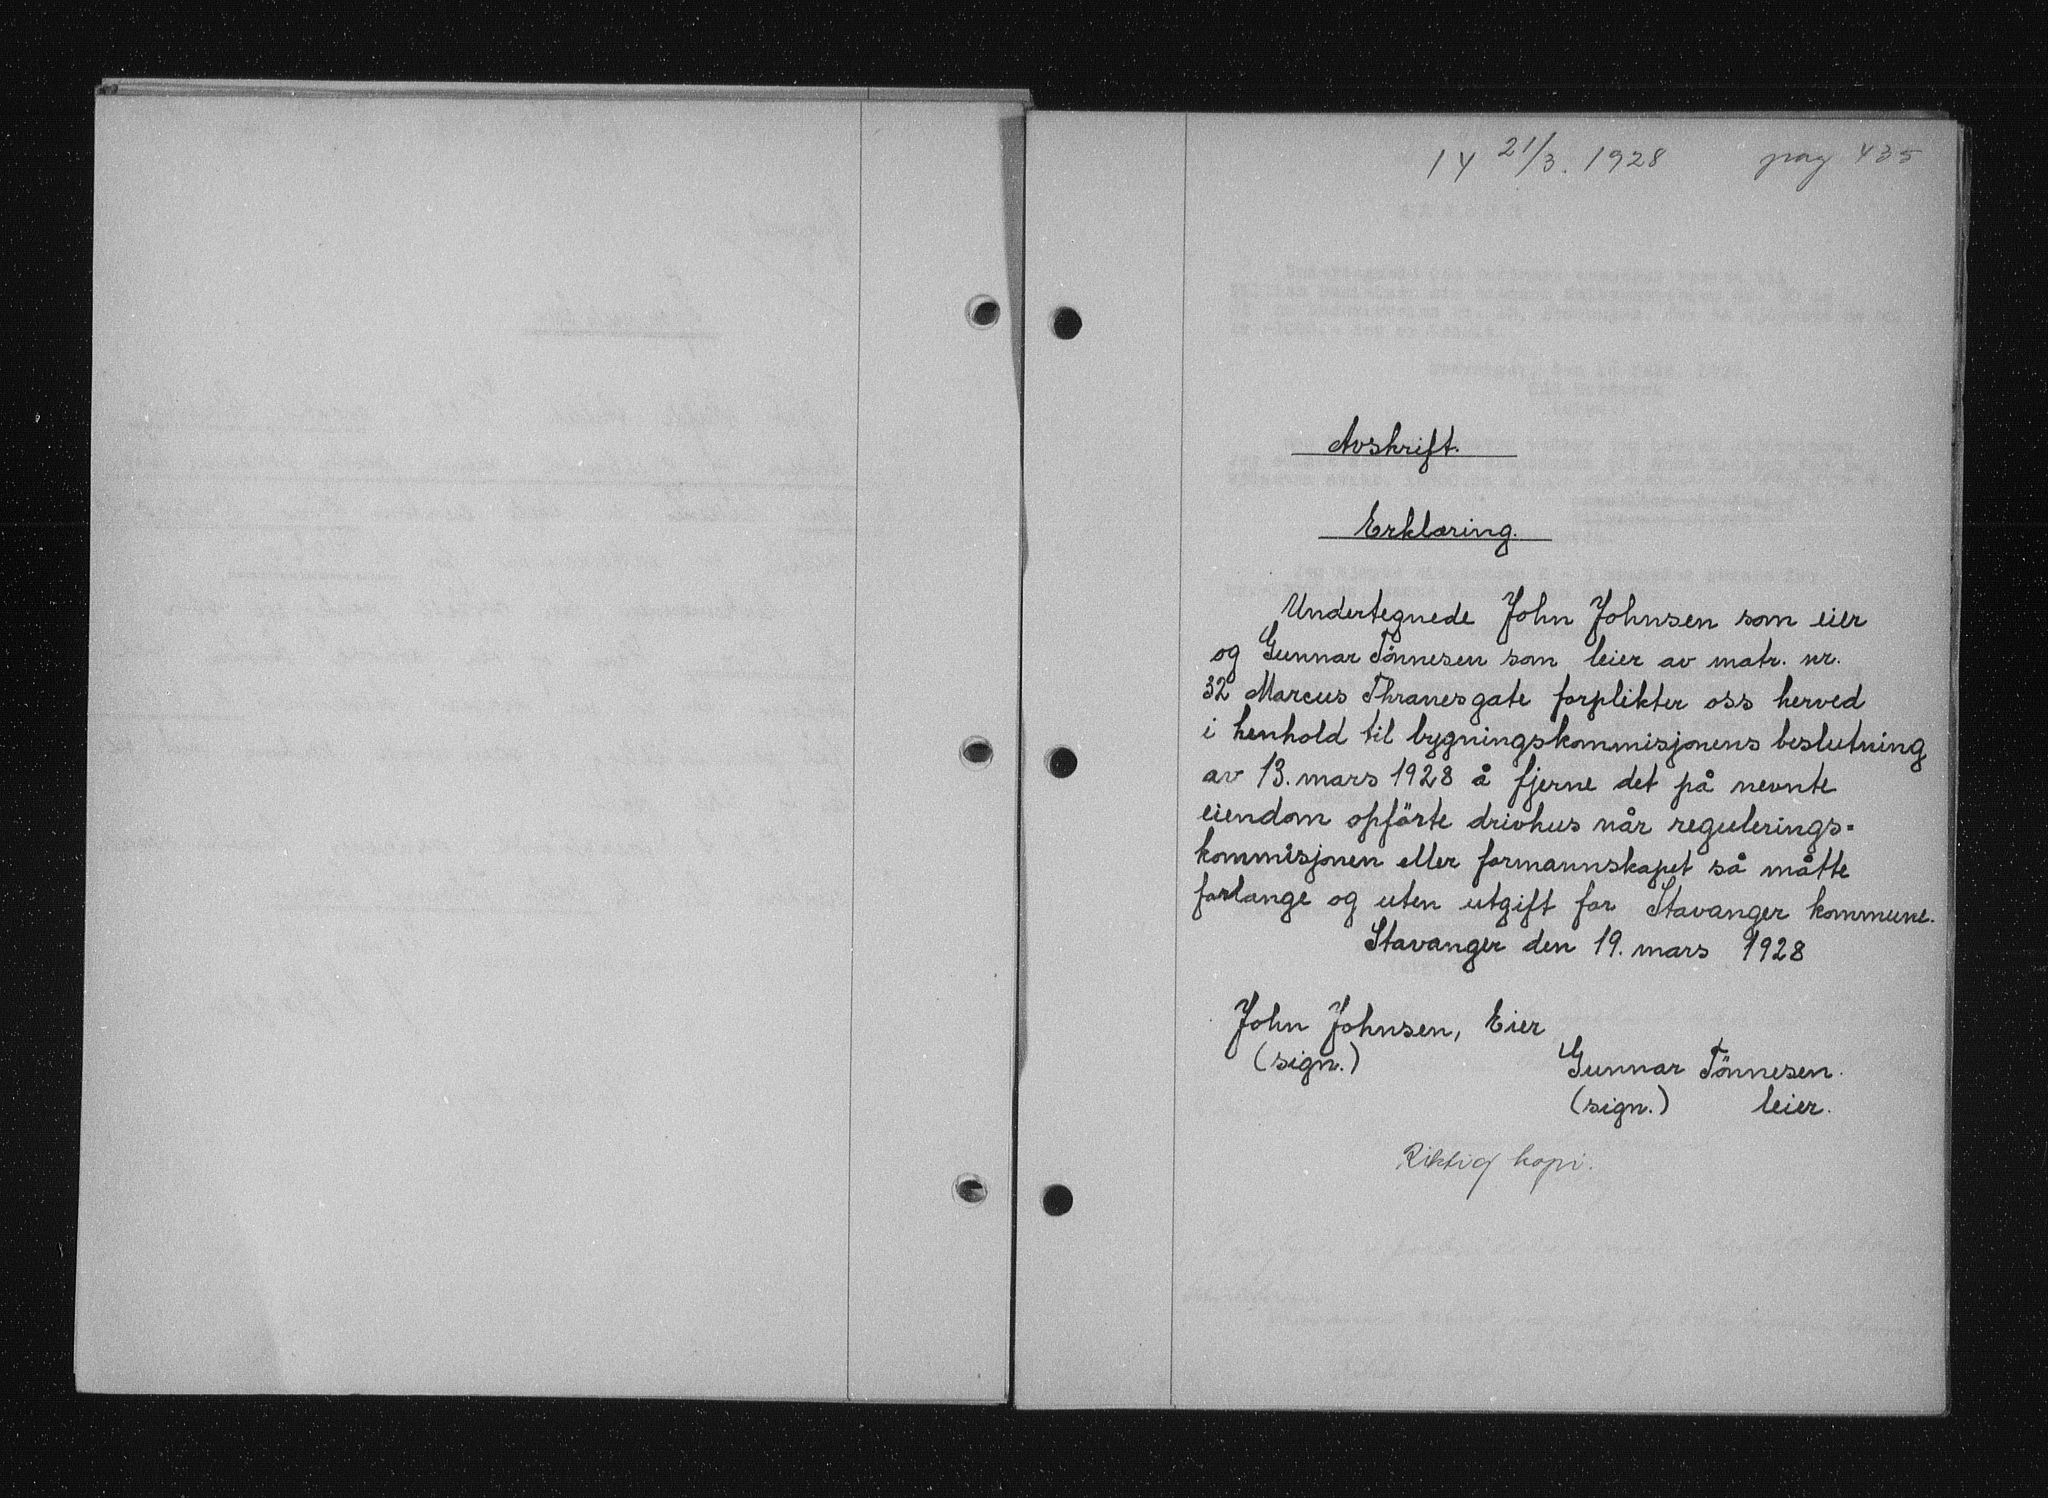 14 21/3. 1928 pag 435
Avskrift.
Erklæring.
Undertegnede John Johnsen som eier
og Gunnar Tönnesen som leier av matr. nr.
32 Marcus Thranesgate forplikter oss herved
i henhold til bygningskommisjonens beslutning
av 13. mars 1928 å fjerne det på nevnte
eiendom opförte drivhus når regulerings=
kommisjonen eller formannskapet så måtte
forlange og uten utgift for Stavanger kommune.
Stavanger den 19. mars 1928
John Johnsen, Eier
(sign.)
Gunnar Tönnesen.
(sign.) leier.
Riktig kopi.